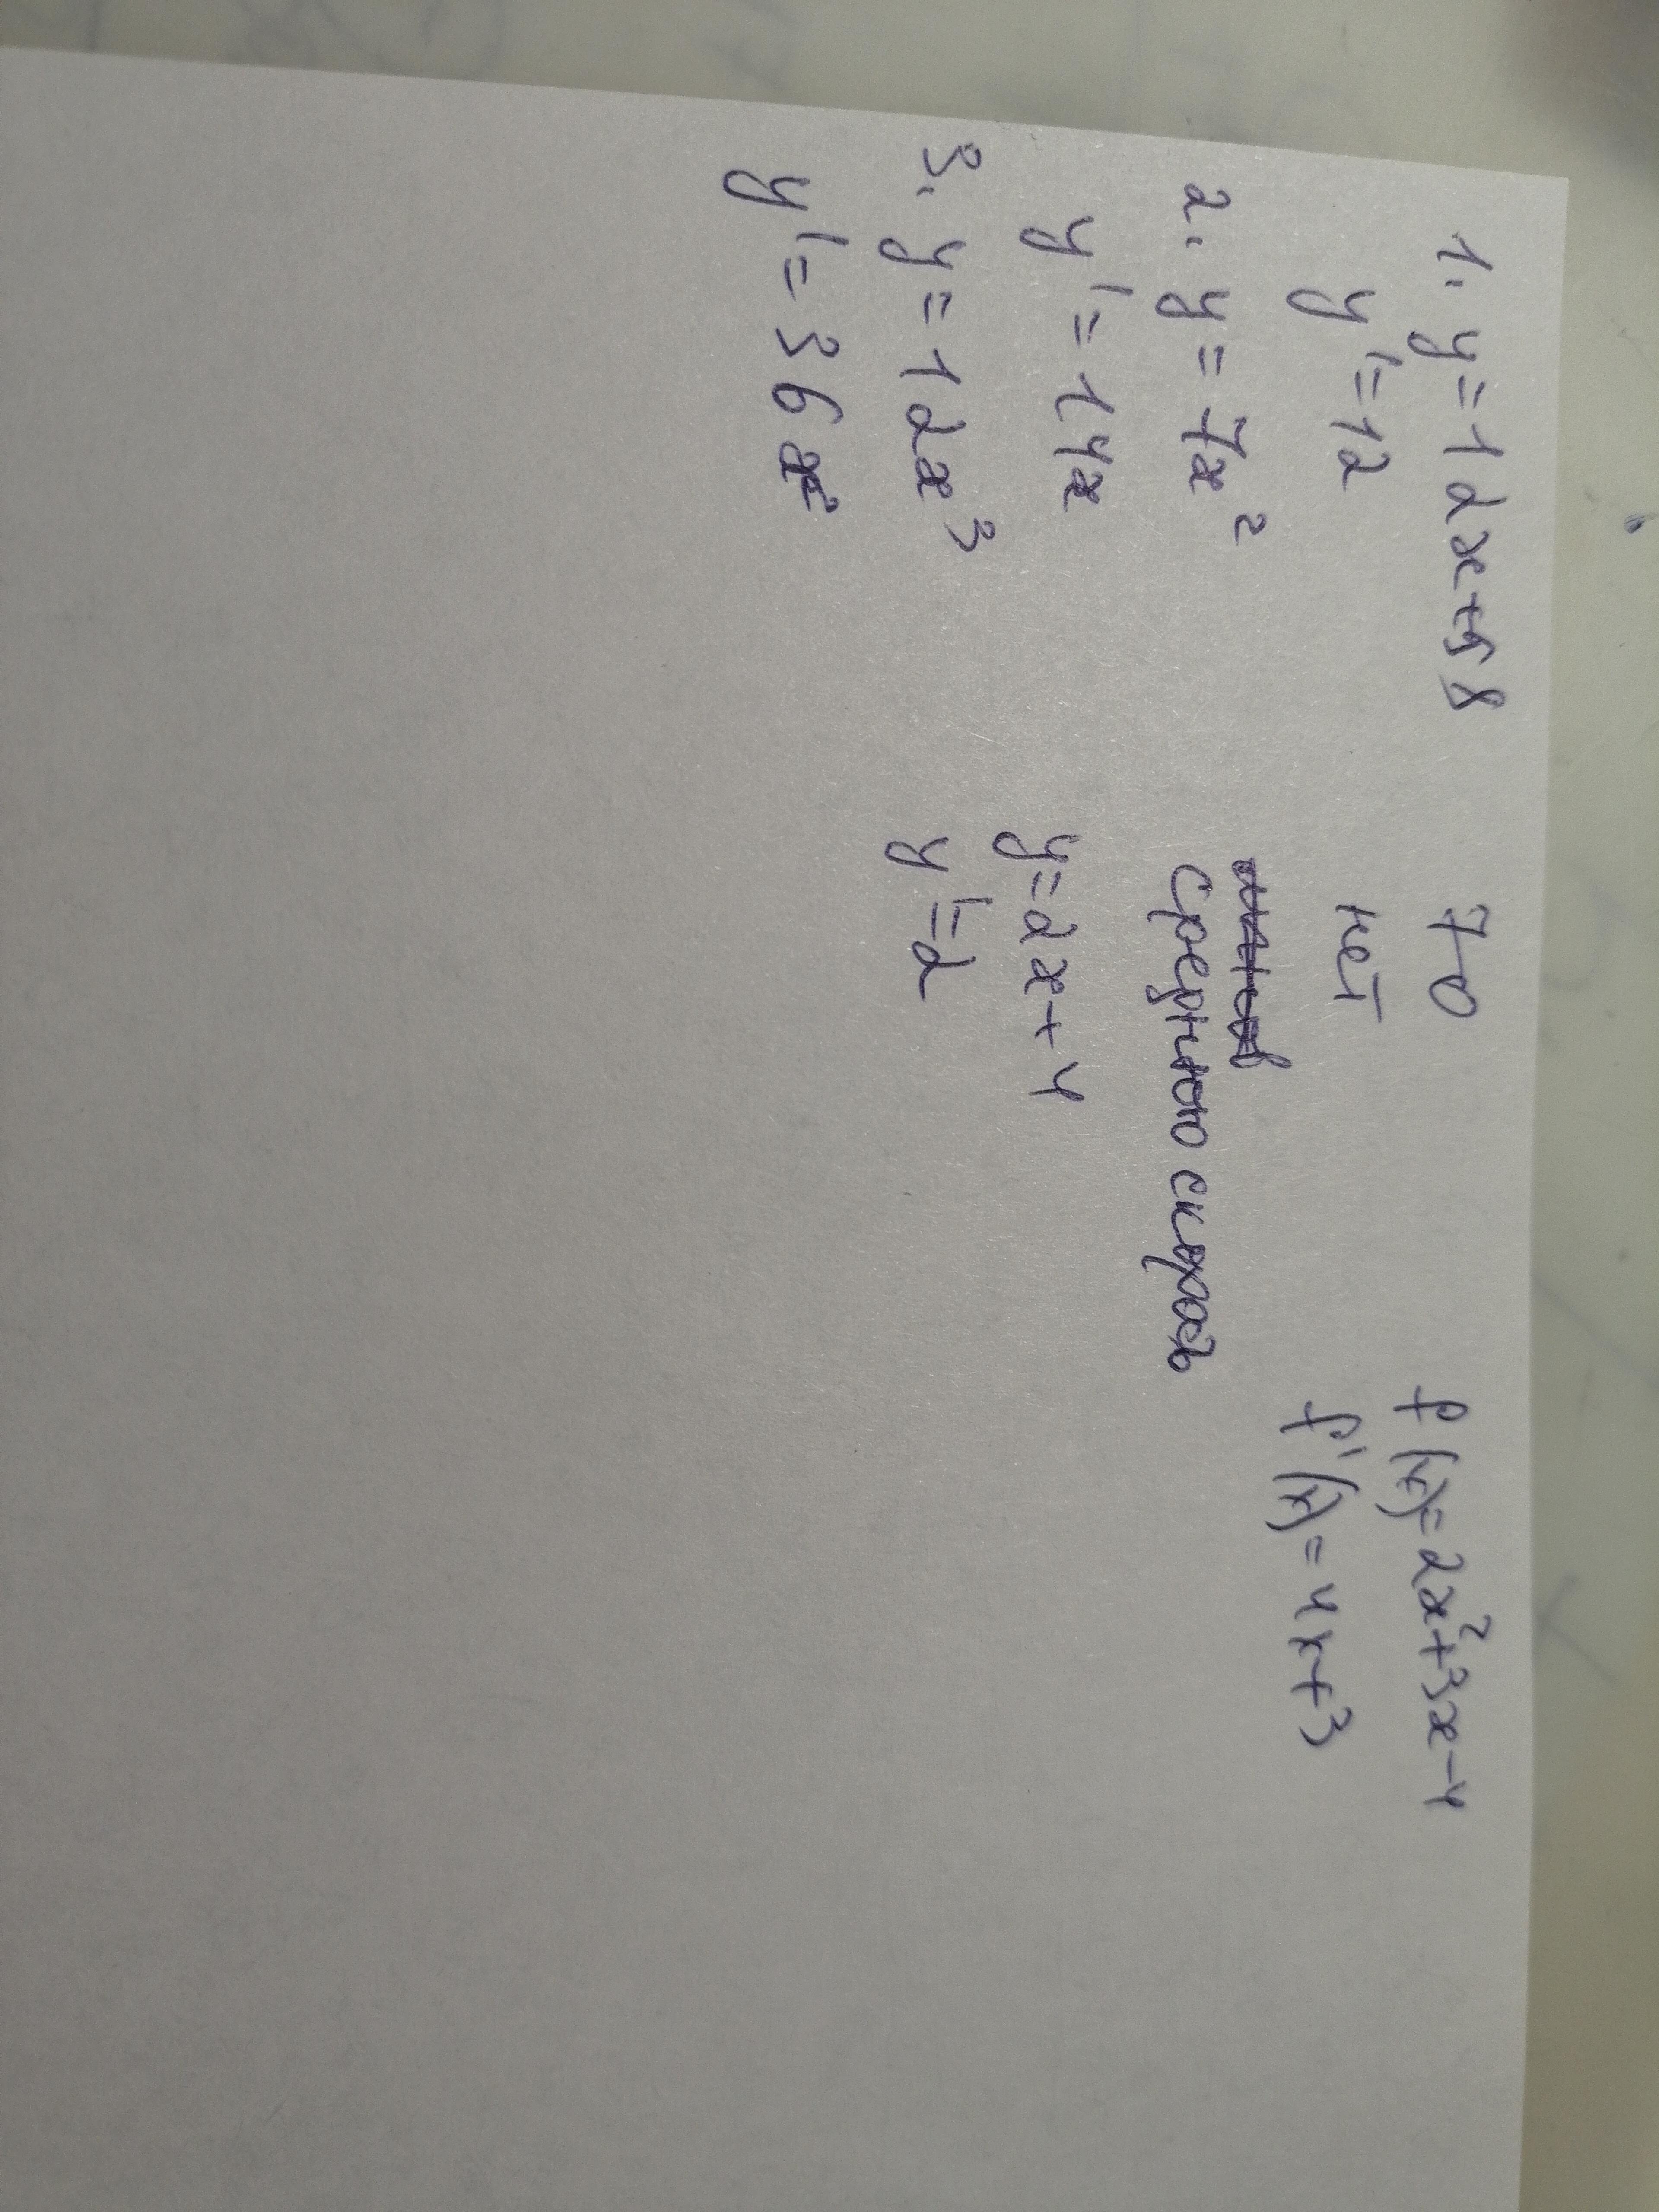 1. y = 12x+58
y' = 12
2. y = 7x²
y' = 14x
3. y = 12x³
y' = 36x²
70
нет
среднюю скорость
y = 2x + 4
y' = 2
f(x) = 2x²+3x-4
f'(x) = 4x+3